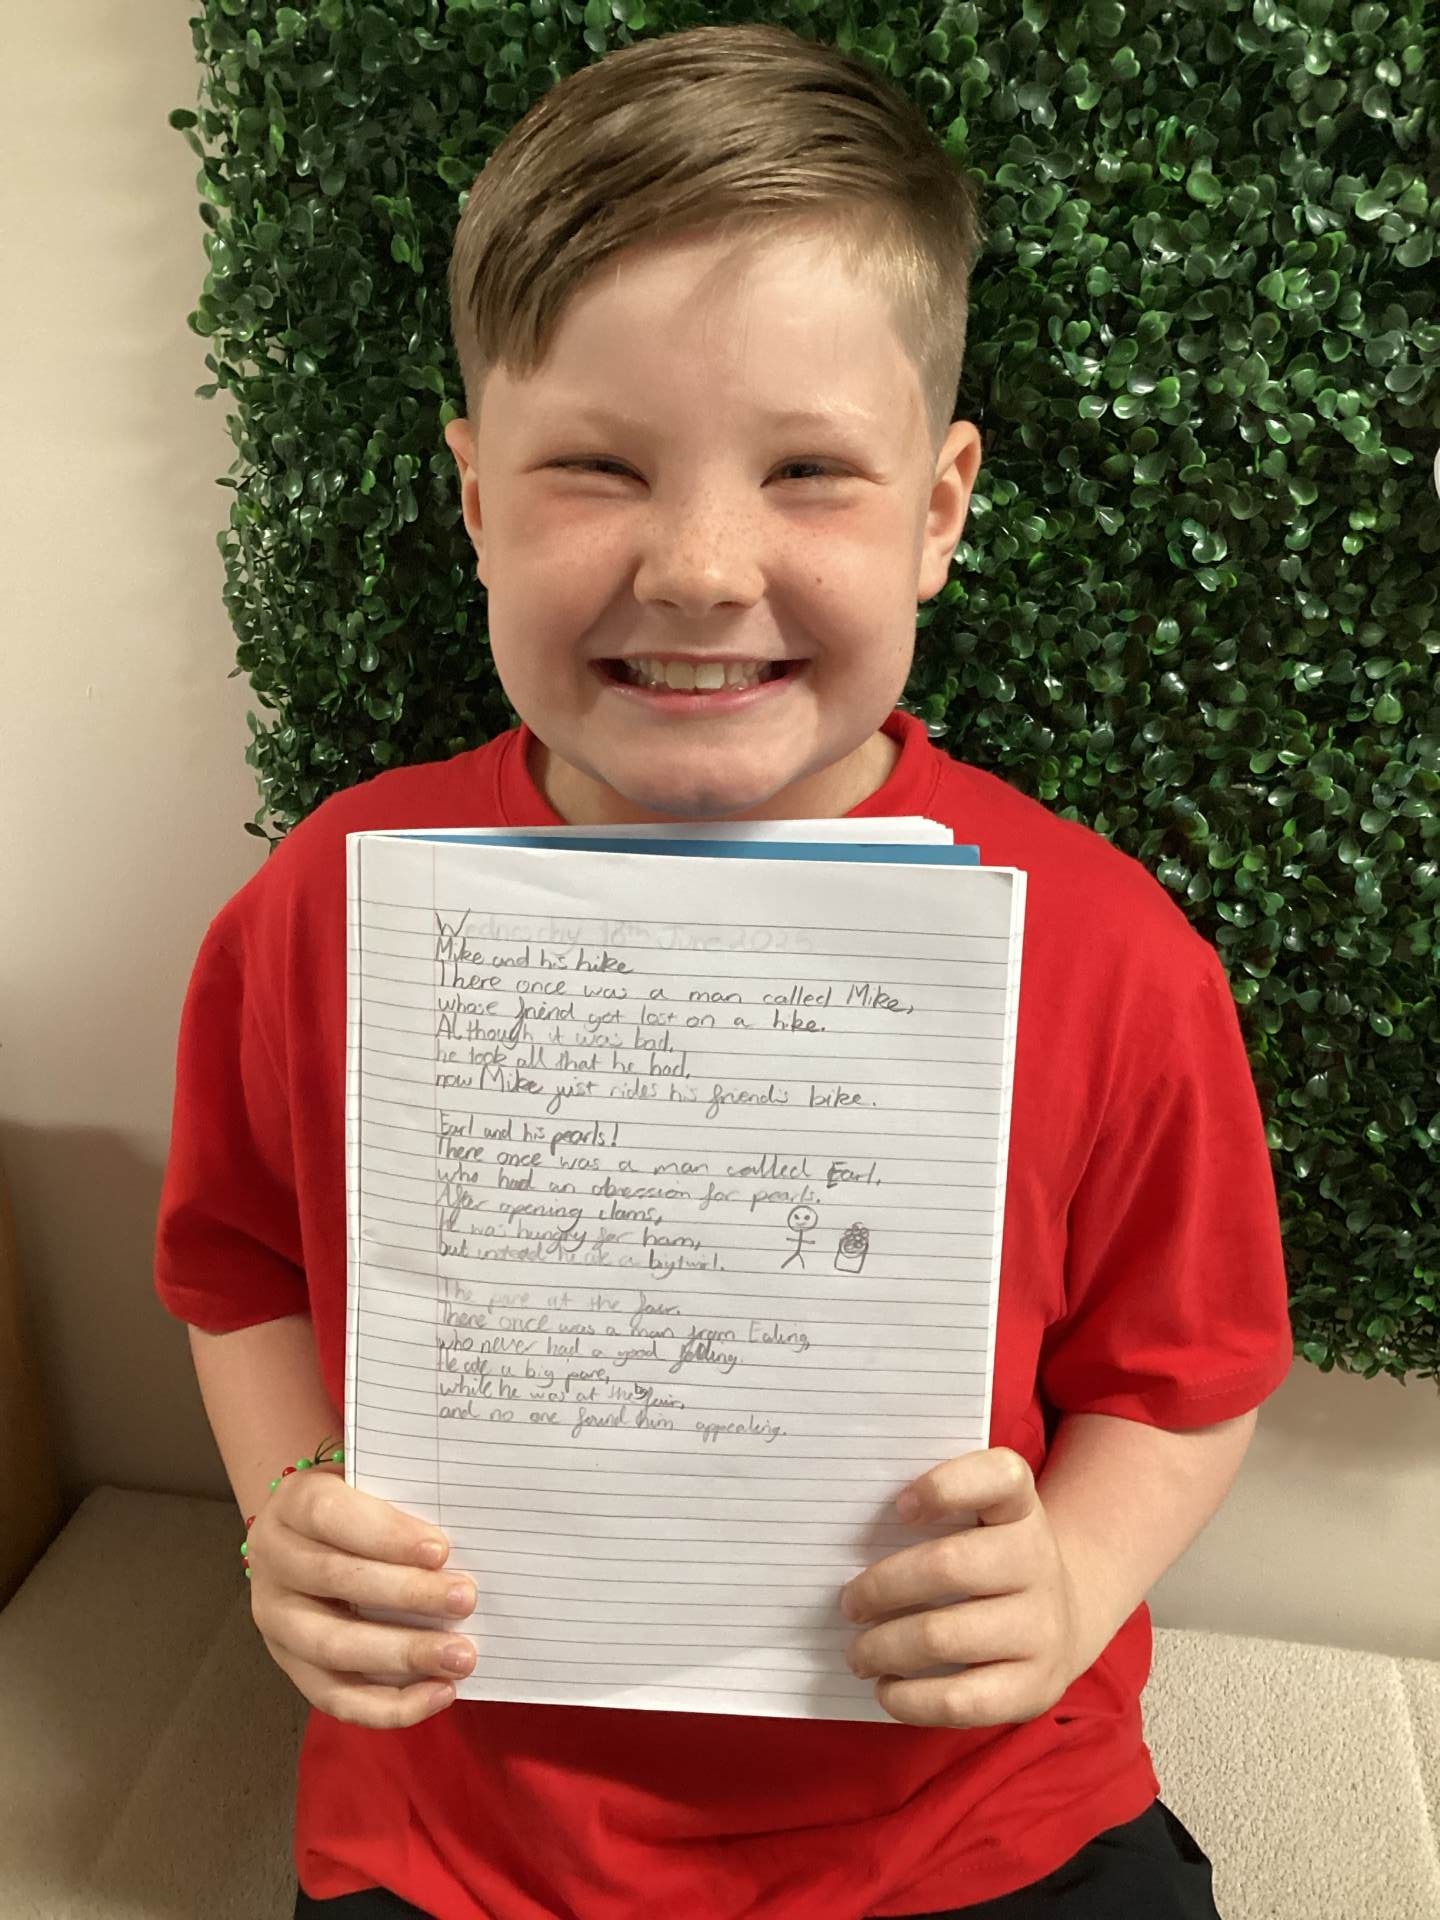 Wednesday 18th June 2025
Mike and his hike
There once was a man called Mike,
whose friend got lost on a hike.
Although it was bad,
he took all that he had,
now Mike just rides his friend's bike.
Earl and his pearls!
There once was a man called Earl,
who had an obsession for pearls.
After opening clams,
He was hungry for ham,
but instead he ate a big
The pare at the fair.
There once was a man from Ealing,
who never had a good feeling.
He ate a big pare,
while he was at the big fair,
and no one found him appealing.